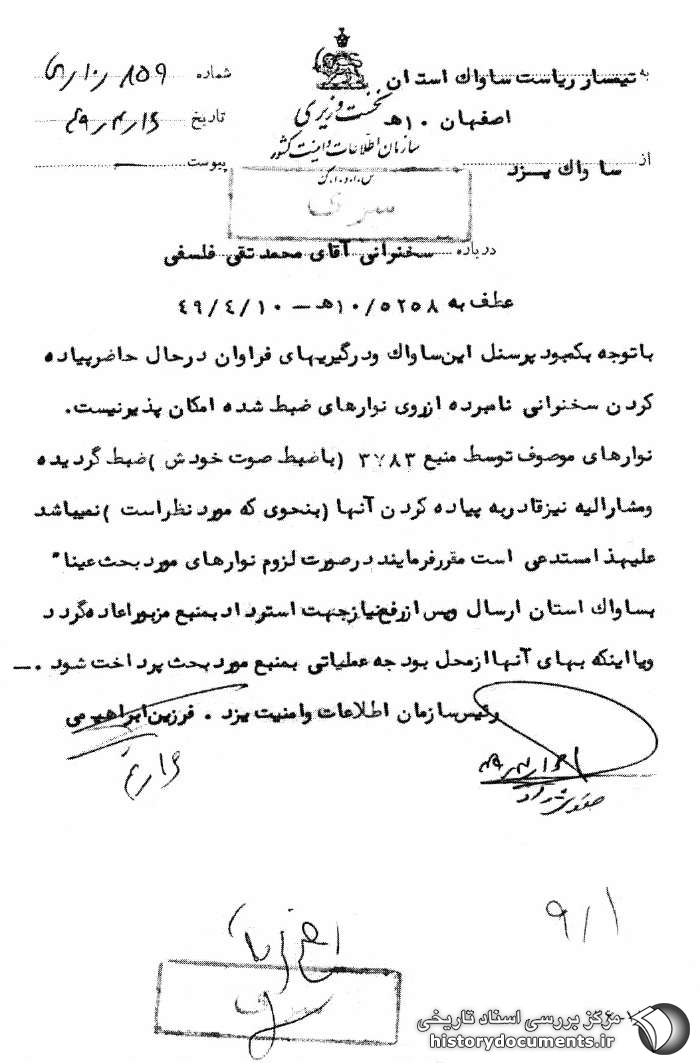 به تیمسار ریاست ساواک استان
اصفهان ۱۰ هـ
از ساواک یزد
نخست وزیری
سازمان اطلاعات و امنیت کشور
س.ا.و.ا.ک
شماره ۸۵۹
تاریخ
پیوست —
سری
درباره سخنرانی آقای محمد تقی فلسفی
عطف به ۱۰/۵۲۵۸هـ — ۴۹/۴/۱۰
با توجه بکمبود پرسنل این ساواک و درگیریهای فراوان در حال حاضر پیاده
کردن سخنرانی نامبرده از روی نوارهای ضبط شده امکان پذیر نیست.
نوارهای موصوف توسط منبع ۳۷۸۳ (با ضبط صوت خودش) ضبط گردیده
و مشارالیه نیز قادر به پیاده کردن آنها (بنحوی که مورد نظر است) نمیباشد
علیهذا مستدعی است مقرر فرمایند در صورت لزوم نوارهای مورد بحث عینا"
بساواک استان ارسال و پس از رفع نیاز جهت استرداد بمنبع مزبور اعاده گردد
و یا اینکه بهای آنها از محل بودجه عملیاتی بمنبع مورد بحث پرداخت شود . —
رئیس سازمان اطلاعات و امنیت یزد . فرزین ابراهیمی
۹/۱
سری
مرکز بررسی اسناد تاریخی
historydocuments.ir